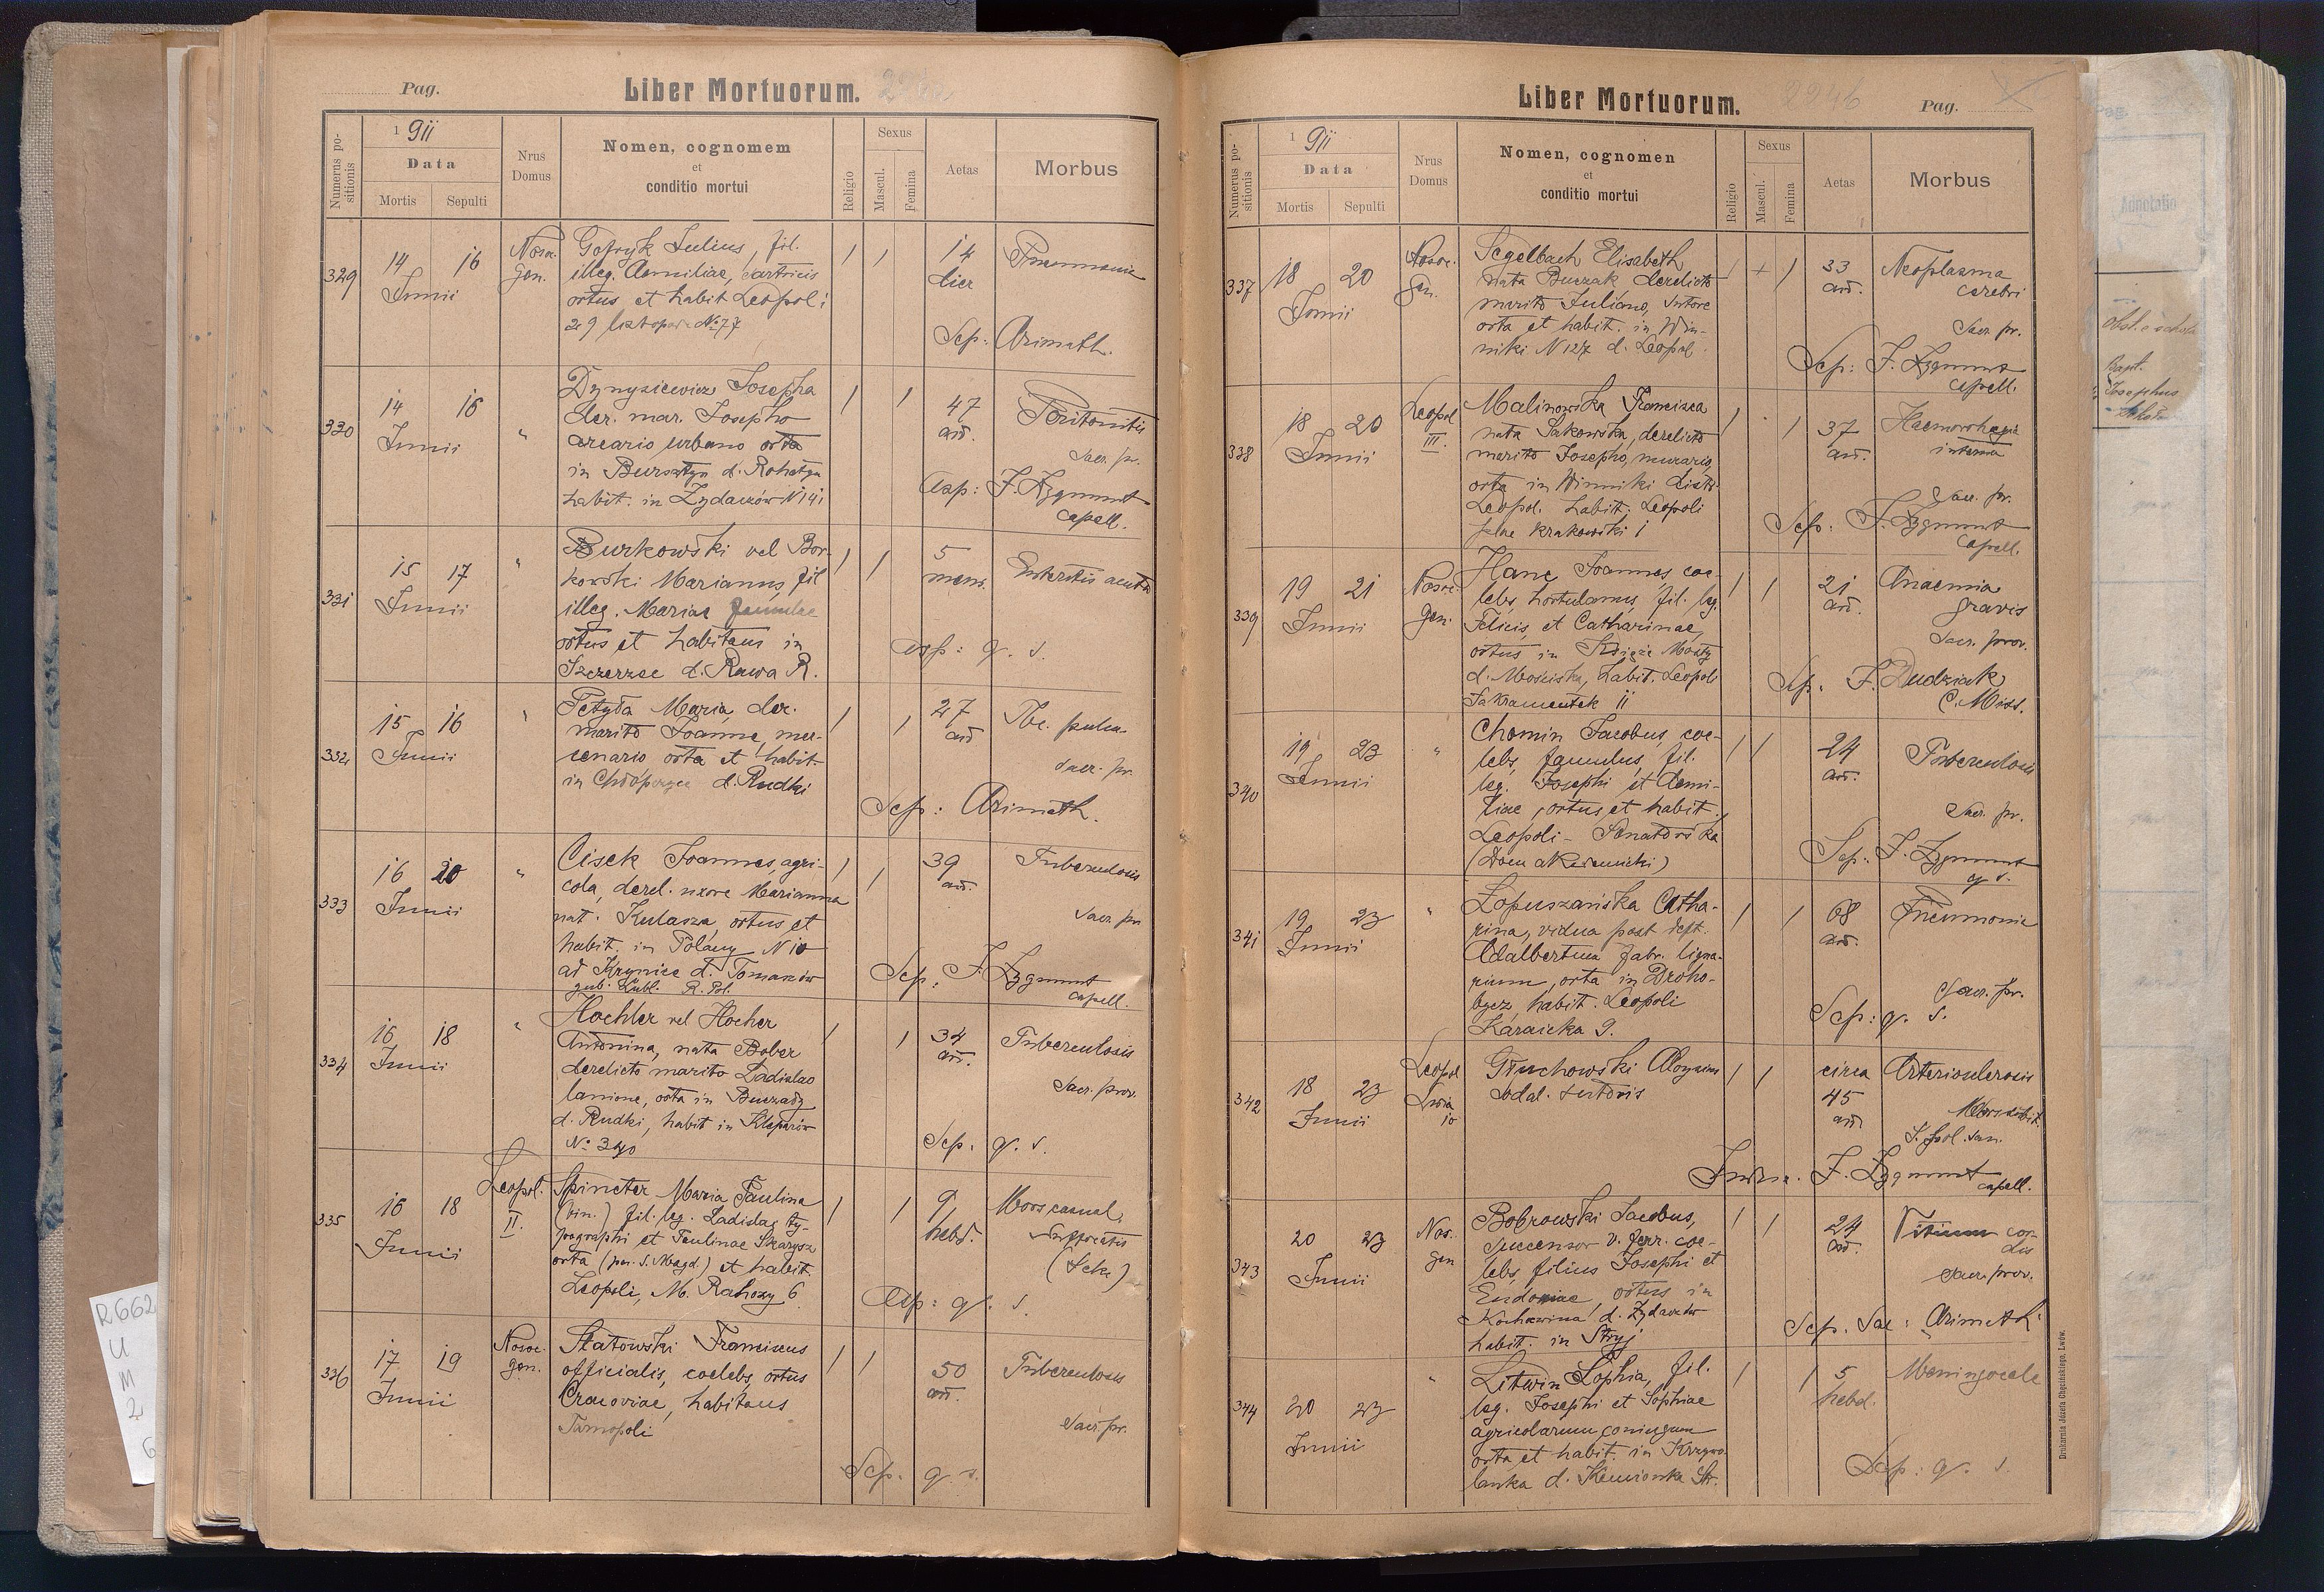 Pag.
Liber Mortuorum.
Numerus positionis
1911
Data
Mortis
Sepulti
Nrus Domus
Nomen, cognomem
et
conditio mortui
Religio
Sexus
Mascul.
Femina
Aetas
Morbus
329
14
16
Junii
Nosoc.
Gen.
Julius, fil.
illeg. Aemiliae, sartricis
ortus et habit Leopoli
29 listopada № 77
1
1
14
dier
Pneumonia
Sep: Arimath.
330
14
16
Junii
"
Josepha
der. mar. Josepho
urbano orta
in Bursztyn d. Rohatyn
habit. in Zydaczów N 141
1
1
47
an.
Peritonitis
Sacr. pr.
Asp: F. Zygmunt
capell.
331
15
17
Junii
"
Burkowski vel Bor-
kowski Marianus, fil
illeg. Mariae famulae
ortus et habitans in
Szczerzec d. Rawa R.
1
1
5
mens.
Enteritis acuta
Asp: q. s.
332
15
16
Junii
"
Maria, der.
marito Joanne, mer-
cenario orta et habit.
in d. Rudki
1
1
27
an
Tbc. pulm.
Sacr. pr.
Sep: Arimath.
333
16
20
Junii
"
Cisek Joannes, agri-
cola, derel. uxore Marianna
nat. Kulasza, ortus et
habit. in Polany N 10
ad Krynice d. Tomaszów
gub. Lubl. R. Pol.
1
1
39
an.
Tuberculosis
Sacr. pr.
Sep: F. Zygmunt
capell.
334
16
18
Junii
"
Hochler vel Hocher
Antonina, nata Bober
derelicto marito Ladislao
lanione, orta in
d. Rudki, habit in Kleparów
№ 390
1
1
34
an.
Tuberculosis
Sacr. prov.
Sep. q. s.
335
16
18
Junii
Leopol.
II.
Spincter Maria Paulina
(bin.) fil. leg. Ladislai ty-
pographi et Paulinae Skarysz
orta (par. S. Magd.) et habit.
Leopoli, M. Rahozy 6
1
1
9
hebd.
Mors casual.
Suffocatis
Asp: q. s.
336
17
19
Junii
Nosoc.
gen.
Statowski Franciscus
officialis, coelebs, ortus
Cracoviae, habitans
Tarnopoli
1
1
50
an.
Tuberculosis
Sacr. pr.
Sep. q. s.
Liber Mortuorum.
2246
Pag.
Numerus positionis
1911
Data
Mortis
Sepulti
Nrus Domus
Nomen, cognomen
et
conditio mortui
Religio
Sexus
Mascul.
Femina
Aetas
Morbus
337
18
20
Junii
Nosoc.
Gen.
Segelbach Elisabeth
nata Buczak derelicto
marito Juliano, sutore
orta et habit. in Win-
niki N 127 d. Leopol.
1
+
1
33
an.
Neoplasma
cerebri
Sacr. pr.
Sep: F. Zygmunt
capell.
338
18
20
Junii
Leopol
III.
Malinowska Francisca
nata Sakowska, derelicto
marito Josepho, murario,
orta in Winniki distr.
Leopol. habit. Leopoli
plac krakowski 1
1
1
37
an.
Haemorrhagia
interna
Sacr. pr.
Sep: F. Zygmunt
capell.
339
19
21
Junii
Nosoc.
gen.
Hanc Joannes, coe-
lebs, hortulanus, fil. leg.
Felicis et Catharinae,
ortus in Księże Mosty
d. Mosciska, habit. Leopoli
Sakramentek 11
1
1
21
an.
Anaemia
gravis
Sacr. prov.
Sep. F. Dudziak
C. Miss.
340
19
23
Junii
"
Chomin Jacobus, coe-
lebs, famulus, fil.
leg. Josephi et Aemi-
liae, ortus et habit.
Leopoli - Senatorska
1
1
24
an.
Tuberculosis
Sacr. pr.
Sep: F. Zygmunt
q. s.
341
19
23
Junii
"
Łopuszańska Catha-
rina, vidua post def.
Adalbertum fabr. ligna-
rium, orta in Droho-
bycz, habit. Leopoli
Karaicka 9.
1
1
68
an.
Pneumonia
Sacr. pr.
Sep: q. s.
342
18
23
Junii
Leopol
10
Głuchowski Aloysius
sodal. sutoris
1
1
circa
45
an
Arteriosclerosis
F. Zygmunt capell.
343
20
23
Junii
Nos.
gen
Bobrowski Jacobus,
succensor v. ferr. coe-
lebs, filius Josephi et
Eudoxiae, ortus in
Kochawina d. Zydaczów
habit. in Stryj
1
1
24
an.
Vitium cor-
dis
Sacr. prov.
Sep. Sac: Arimath.
344
20
23
Junii
"
Litwin Sophia, fil.
leg. Josephi et Sophiae
agricolarum conjugum
orta et habit. in Krzywo-
lanka d. Kamionka Str.
1
1
5
hebd.
Meningocele
Sep: q. s.
Drukarnia Józefa Chęcińskiego, Lwów.
Pag.
Annotatio
Bapt.
Josephus
R662
U
M
2
6